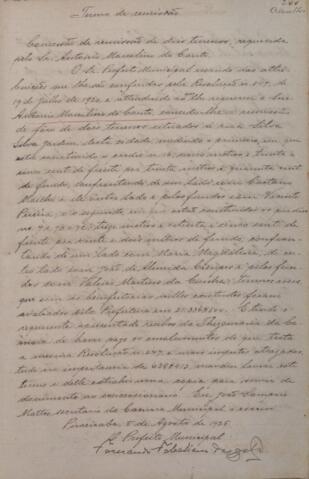 Termo de remissão
Concessão de remissão de dois terrenos, requerida
pelo Snr. Antonio Marcolino do Canto.
O Snr. Prefeito Municipal usando das attri-
buições que lhe são conferidas pela Resolução n. de
19 de Julho de 1920 e attendendo ao que requereu o Snr.
Antonio Marcolino do Canto, concede-lhe a remissão
de fôro de dois terrenos situados á rua Silva
Silva Jardim desta cidade medindo o primeiro em que
está construido o predio n. metros e trinta e
cinco cent. de frente por trinta metros e quarenta cent.
de fundo, confrontando de um lado com Caetano
de outro lado e pelos fundos com Vicente
Pereira, e o segundo em que estão construidos os predios
n. 70 e 72, metros e oitenta e cinco cent. de
frente por vinte e dois metros de fundo, confron-
tando de um lado com Maria Magdalena, de
outro lado com José de Almeida e pelos fun-
dos com Martins da Cunha; terrenos esses
que sem as bemfeitorias nelles construidas foram
avaliados pela Prefeitura em E tendo o
requerente apresentado recibo da Thesouraria da Ca-
mara de haver pago os emolumentos de que trata
a mesma Resolução n. e mais impostos atrazados,
tudo na importancia de mandou lavrar este
termo e delle extrahir uma copia para servir de
documento ao concessionario. Eu, João
Mattos secretario da Camara Municipal o escrevi.
Piracicaba, 5 de Agosto de 1925
O Prefeito Municipal
Fernando Febeliano da Costa